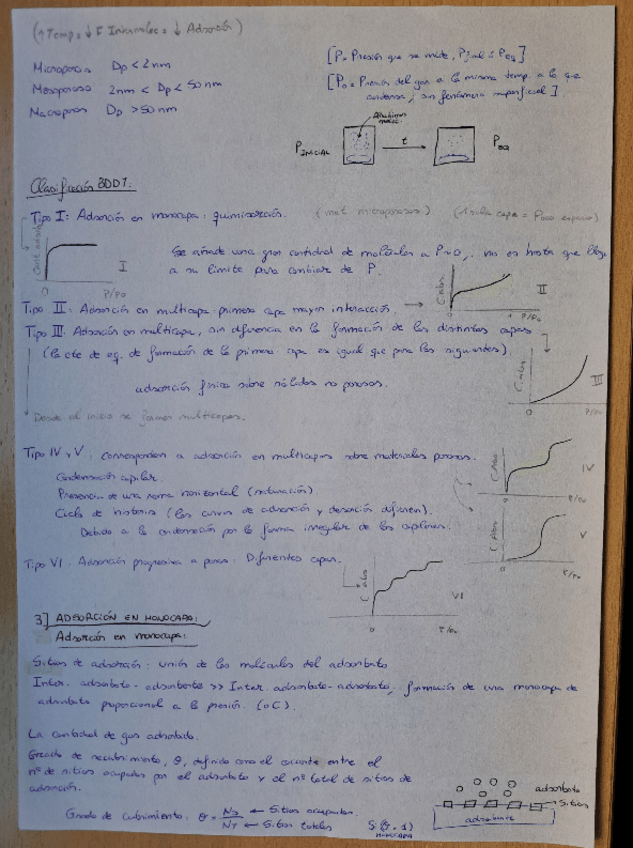 (↑Temp = ↓F Intermolec = ↓ Adsorción)
Microporoso Dp < 2nm
Mesoporoso 2nm < Dp < 50nm
Macroporos Dp > 50nm
[P = Presión que se mide, Pfinal o Peq]
[P0 = Presión del gas a la misma temp. a la que condensa, sin fenómeno superficial]
Añadimos moléc.
PINICIAL t PEQ
Clasificación BDDT:
Tipo I: Adsorción en monocapa: quimisorción. (mat. microporosos) (1 sola capa = Poro espacio)
Cant. adsorb.
0 P/P0 I
Se añade una gran cantidad de moléculas a P≈0, no es hasta que llega
a su límite para cambiar de P.
Tipo II: Adsorción en multicapa: primera capa mayor interacción. →
C. abs
0 1 P/P0 II
Tipo III: Adsorción en multicapa, sin diferencia en la formación de las distintas capas
(la cte de eq. de formación de la primera capa es igual que para las siguientes).
adsorción física sobre sólidos no porosos.
C. abs
0 P/P0 III
Desde el inicio se forman multicapas.
Tipo IV y V: corresponden a adsorción en multicapas sobre materiales porosos.
Condensación capilar.
Presencia de una rama horizontal (saturación)
Ciclo de histéresis (las curvas de adsorción y desorción difieren).
Debido a la condensación por la forma irregular de los capilares.
C. Abs
0 P/P0 IV
C. Abs
0 P/P0 V
Tipo VI: Adsorción progresiva a pasos: Diferentes capas.
C. abs
0 P/P0 VI
3] ADSORCIÓN EN MONOCAPA:
Adsorción en monocapa:
Sitios de adsorción: unión de las moléculas del adsorbato
Inter. adsorbato-adsorbente >> Inter. adsorbato-adsorbato; formación de una monocapa de
adsorbato proporcional a la presión. (αC).
La cantidad de gas adsorbido.
Grado de recubrimiento, θ, definido como el cociente entre el
nº de sitios ocupados por el adsorbato y el nº total de sitios de
adsorción.
Grado de cubrimiento: θ = Ns ← Sitios ocupados.
NT ← Sitios totales
MONOCAPA
adsorbato
Sitios
adsorbente